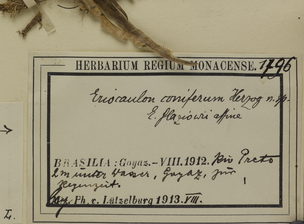 HERBARIUM REGIUM MONACENSE. 1796
Eriocaulon coniferum Herzog n. sp.
E. glaziowi affine
BRASILIA: Goyaz.-VIII.1912. Rio Preto
2m unter Wasser, Goyaz, zur
Regenzeit.
leg. Ph. v. Lützelburg 1913. VIII.
L.